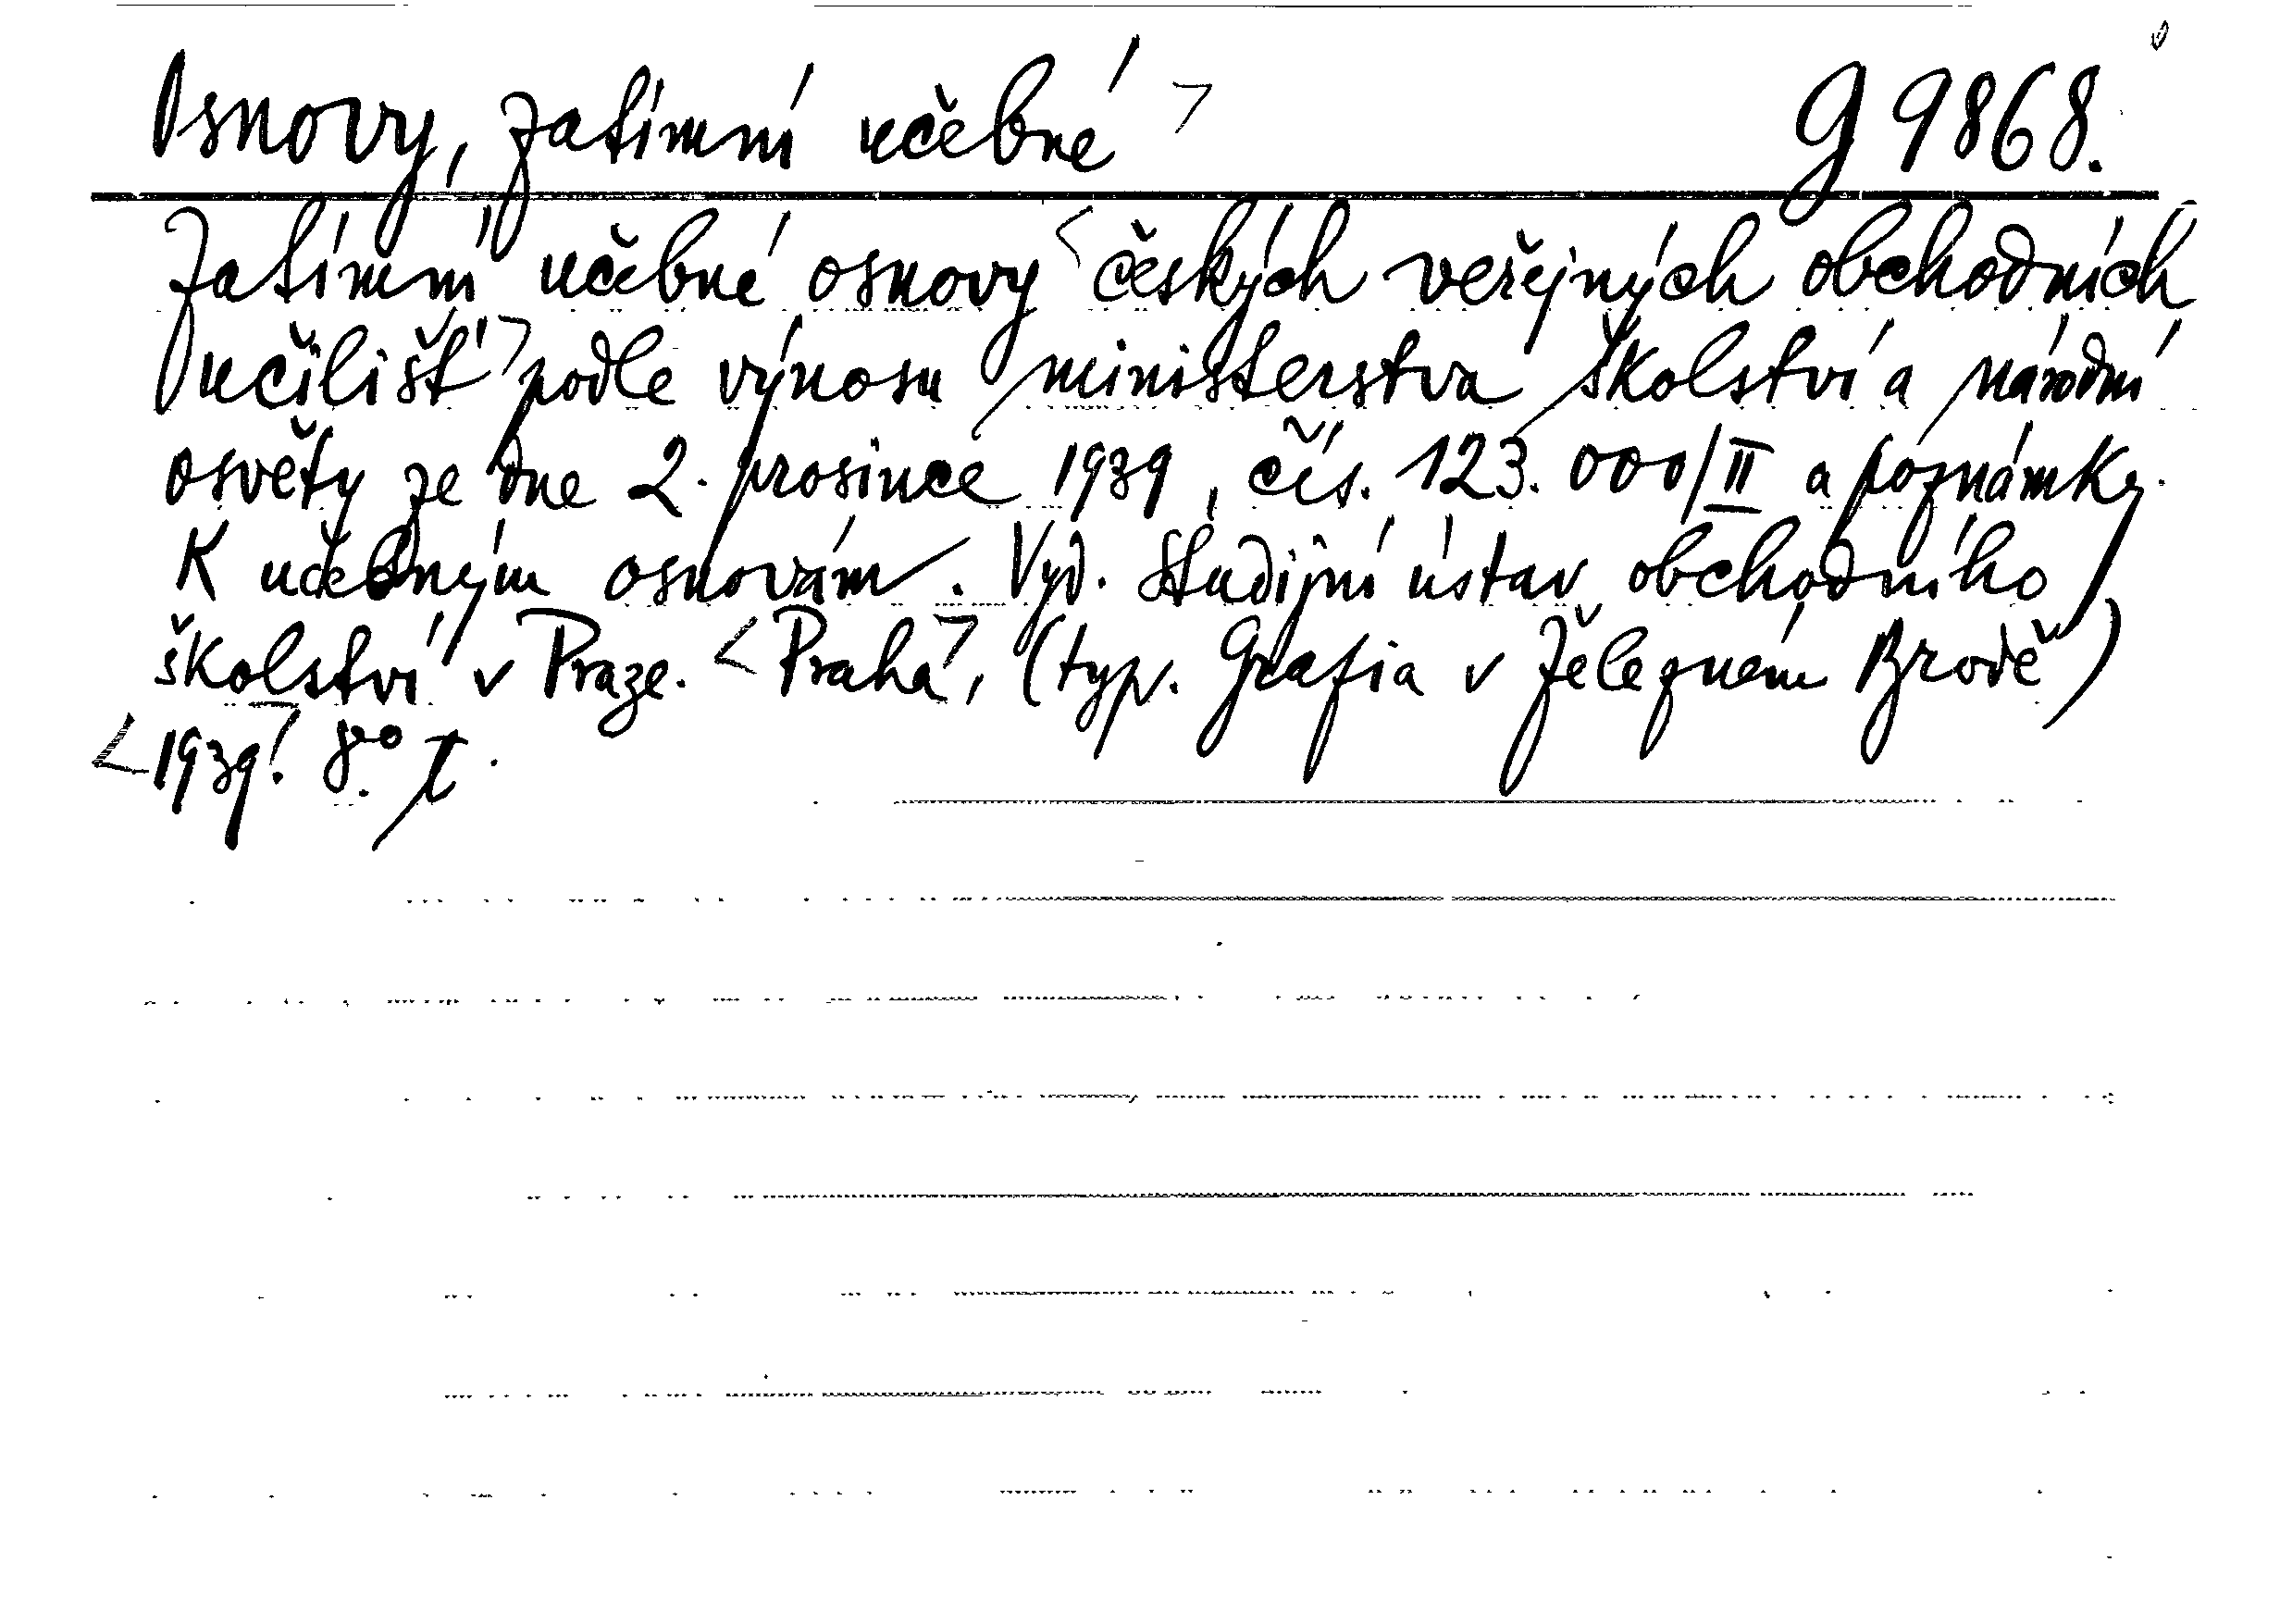 Osnovy, zatímní učebné > G 9868.
Zatímní učebné osnovy < českých veřejných obchodních
učilišť > podle výnosu ministerstva školství a národní
osvěty ze dne 2. prosince 1939, čís. 123.000/II a poznámky
K učebným osnovám. Vyd. Studijní ústav obchodního
školství v Praze. <Praha>, (typ. Grafia v Železném Brodě)
<1939>. 8°.